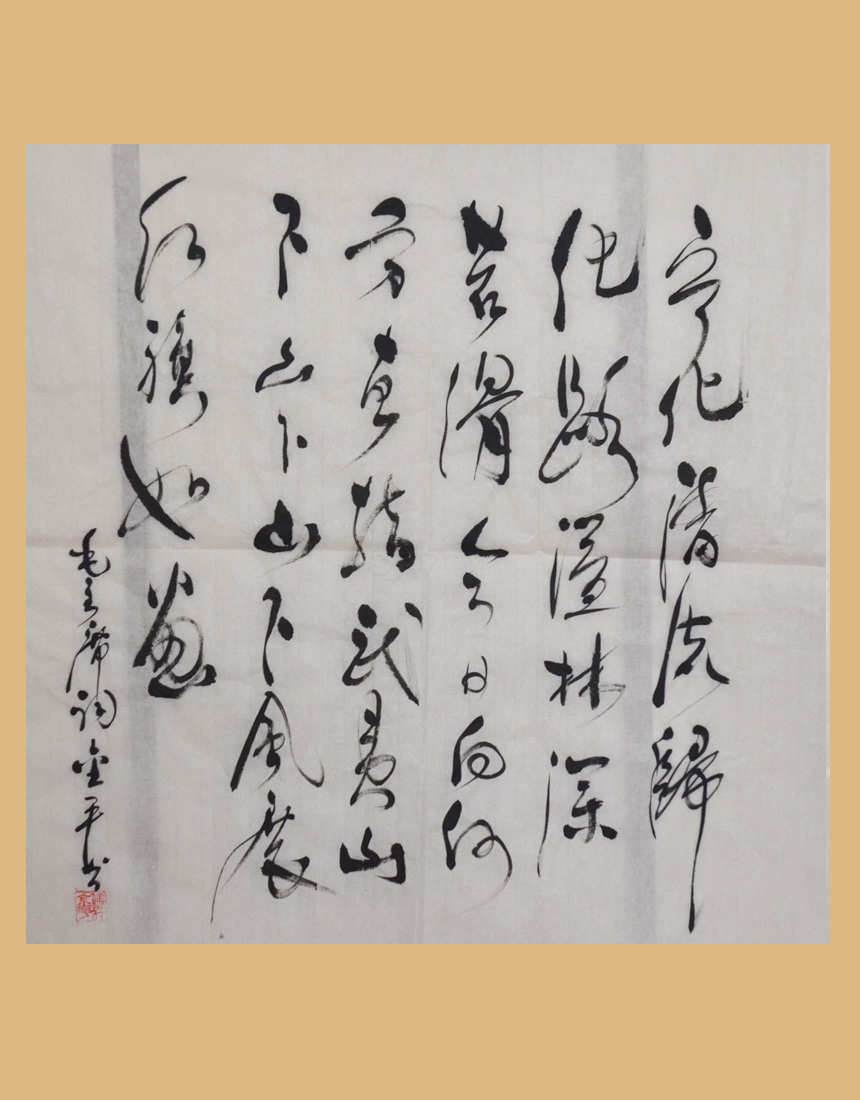 宁化清流歸
化路隘林深
苔滑今日向何
方直指武夷山
下山下山下風展
红旗如畫
毛主席词金平书